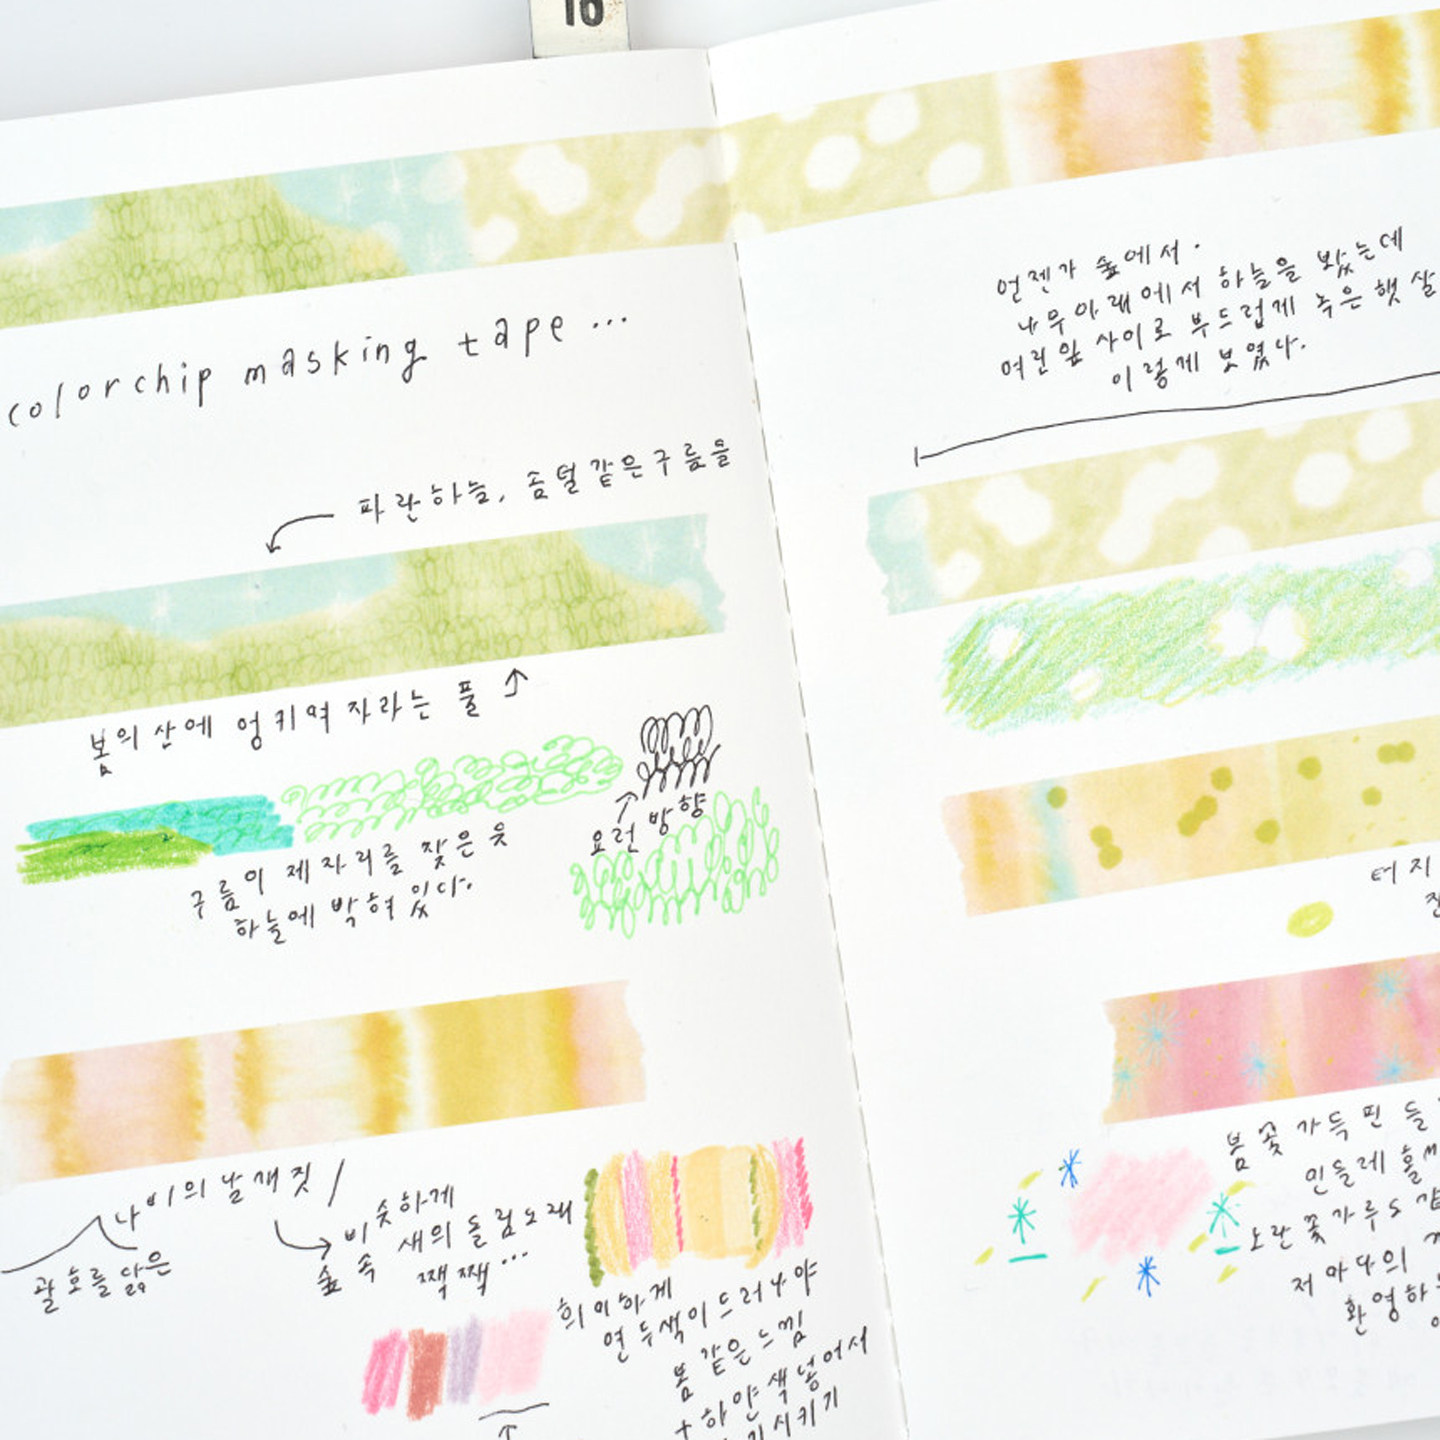 16
colorchip masking tape ...
파란하늘, 솜털 같은 구름을
봄의 산에 엉키며 자라는 풀
요런 방향
구름이 제자리를 찾은 듯
하늘에 박혀 있다.
나비의 날개짓
괄호를 닮은
비슷하게
숲 속 새의 돌림노래
짹짹...
희미하게
연두색이 드러나야
봄 같은 느낌
+ 하얀색 넣어서
시키기
언젠가 숲에서.
나무 아래에서 하늘을 봤는데
여린잎 사이로 부드럽게 녹은 햇살
이렇게 보였다.
터지
봄꽃 가득 핀 들
민들레 홀씨
노란 꽃가루도
저마다의
환영하